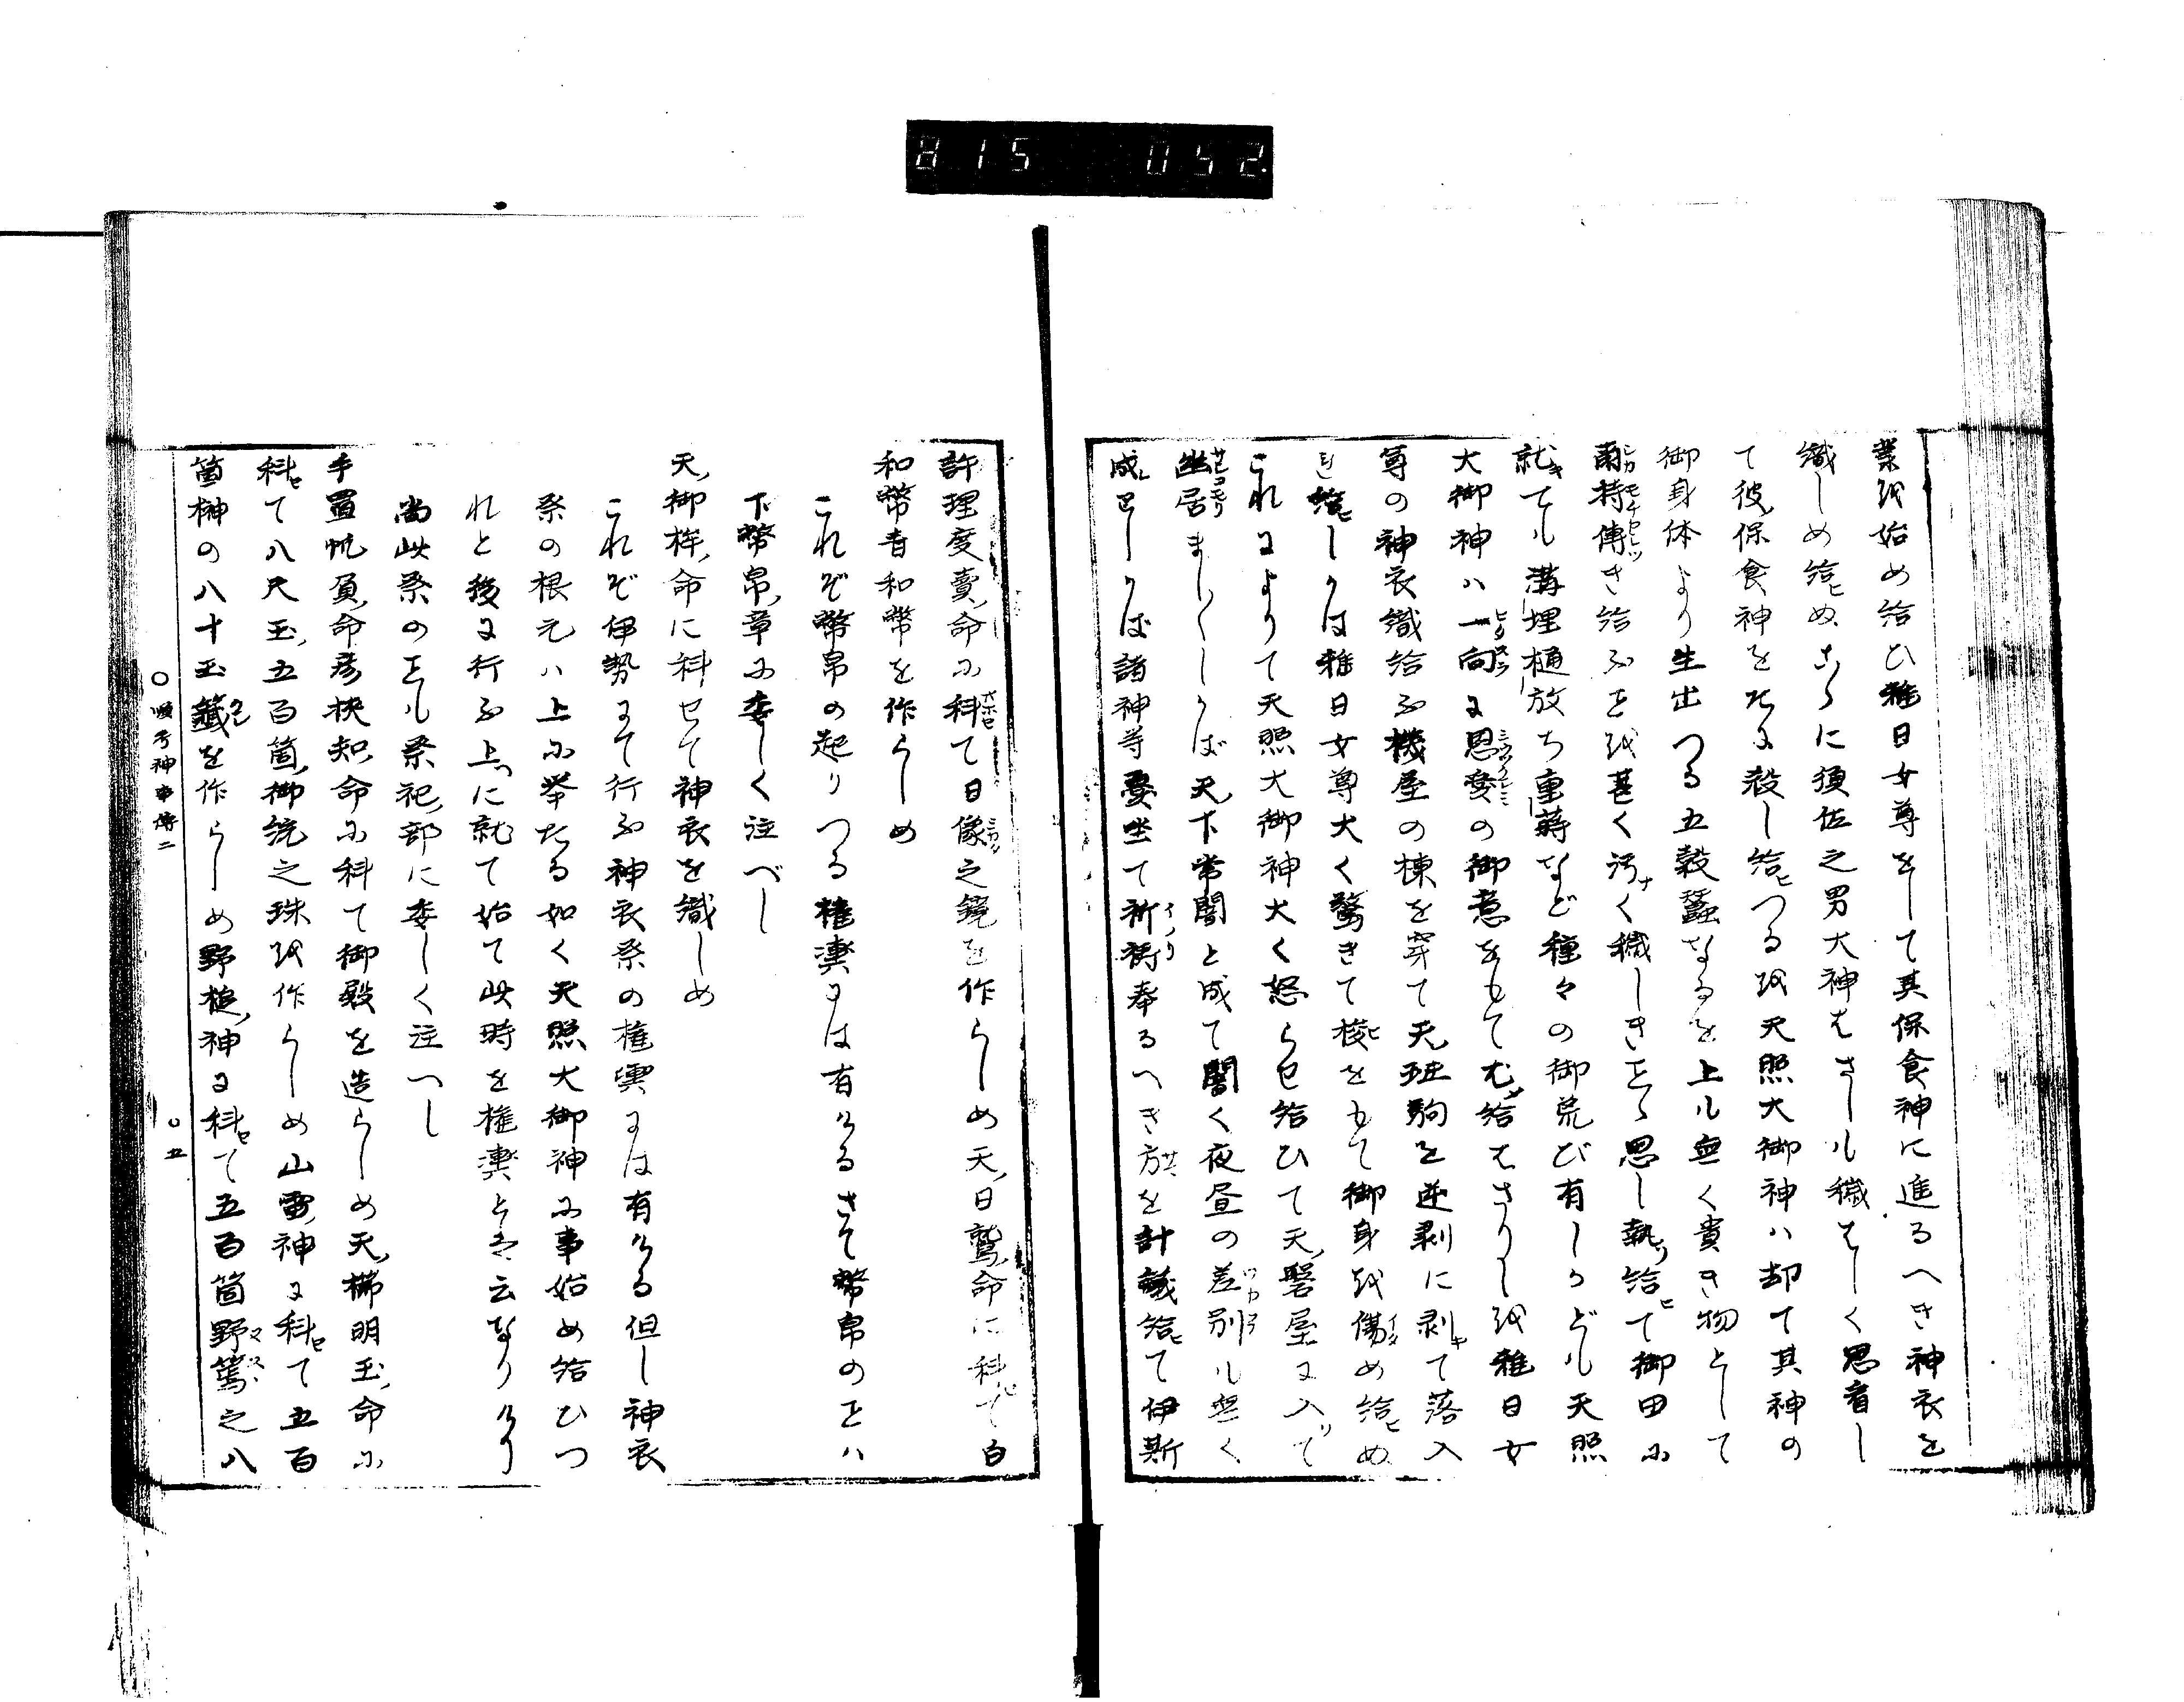 815 052
業を始め給ひ稚日女尊をして其保食神に進るへき神衣を
織しめ給ヒぬこゝに須佐之男大神はさしも穢はしく思看し
て彼保食神をたに殺し給ヒつるを天照大御神ハ却て其神の
御身体より生出つる五穀蚕なるを上も無く貴き物として
持傳き給ふことを甚く汚ナく穢しきことゝ思し執リ給ヒて御田に
就キても溝埋樋放ち重蒔など種々の御荒び有しかども天照
大御神ハ一向に恩愛の御意をもてむ給はさりしを稚日女
尊の神衣織給ふ機屋の棟を穿て天斑駒を逆剥に剥キて落入
給ヒしかは稚日女尊大く驚きて梭ヒをもて御身を傷め給ヒぬ
これによりて天照大御神大く怒らせ給ひて天磐屋に入リて
幽居ましゝしかば天下常闇と成て闇く夜昼の差別も無く
成レりしかば諸神等憂坐て祈祷奉るへき方を計議給ヒて伊斯
許理度賣命に科て日像之鏡を作らしめ天日鷲命に科セて白
和幣青和幣を作らしめ
これぞ幣帛の起りつる権輿には有けるさて幣帛のことハ
下幣帛章に委しく注べし
天御桙命に科せて神衣を織しめ
これぞ伊勢にて行ふ神衣祭の権輿には有ける但し神衣
祭の根元ハ上に挙たる如く天照大御神に事始め給ひつ
れと後に行ふ上に就て始て此時を権輿とは云なりけり
尚此祭のことも祭祀部に委しく注へし
手置帆負命彦狭知命に科て御殿を造らしめ天櫛明玉命に
科セて八尺玉五百箇御統之珠を作らしめ山雷神に科セて五百
箇榊の八十玉籤を作らしめ野槌神に科セて五百箇野篶之八
○順考神事傳二
○五